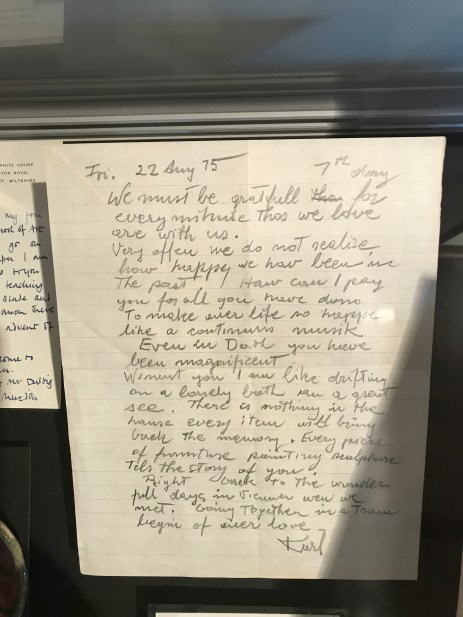 Fri. 22 Aug 75 7th day
We must be gratfull for
every minute thos we love
are with us.
Very often we do not realise,
how happy we hav been in
The past! How can I pay
you for all you have done
To make over life so happe
like a continuns musik
Even in Death you have
been magnificent
Without you I am like drifting
on a lonely both on a great
see. There is nothing in the
house every item will bring
back the memory. Every piece
of furniture painting sculpture
Tels the story of you.
Right back to the wonder
full days in Vienna wen we
met. Going Together in a Tram
begin of over love
Kurl
WHITE HOUSE
TOR ROYAL
WILTSHIRE
my
go on
I am
teaching
and
advent of
come to